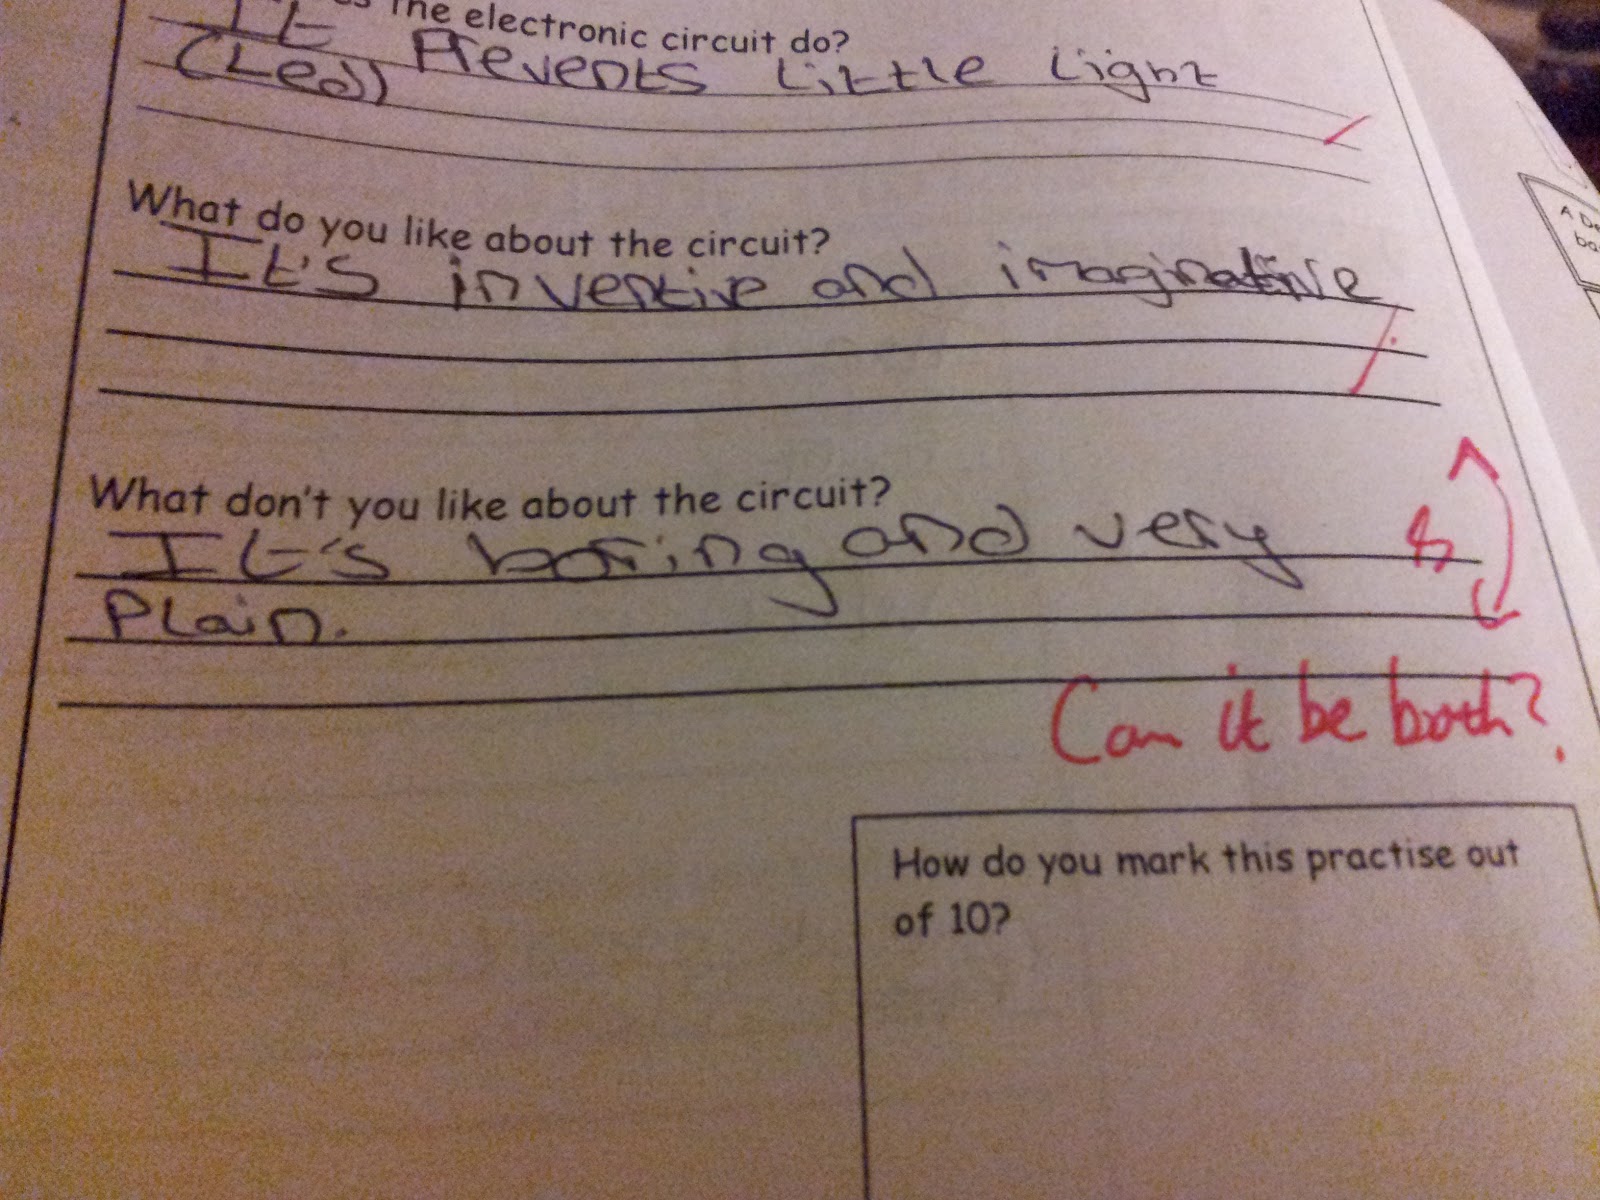 the electronic circuit do?
It Prevents Little Light
(Led)
What do you like about the circuit?
It's inventive and imaginative
What don't you like about the circuit?
It's boring and very
Plain.
Can it be both?
How do you mark this practise out
of 10?
A De
ba